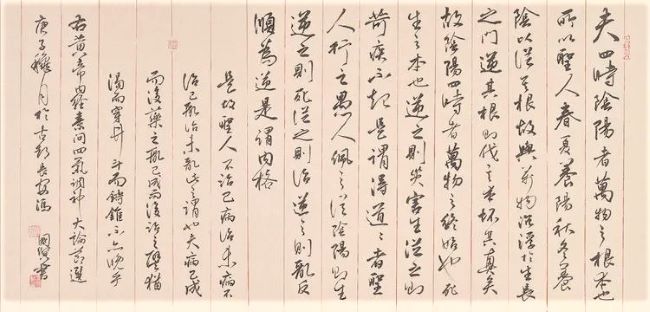 夫四時陰陽者萬物之根本也
所以聖人春夏養陽秋冬養
陰以從其根故與萬物沉浮於生長
之門逆其根則伐其本壞其真矣
故陰陽四時者萬物之終始也死
生之本也逆之則災害生從之則
苛疾不起是謂得道道者聖
人行之愚人佩之從陰陽則生
逆之則死從之則治逆之則亂反
順為逆是謂內格
是故聖人不治已病治未病不
治已亂治未亂此之謂也夫病已成
而後藥之亂已成而後治之譬猶
渴而穿井斗而鑄錐不亦晚乎
右黃帝內經素問四氣調神大論節選
庚子穐月於古都長安馮
國書